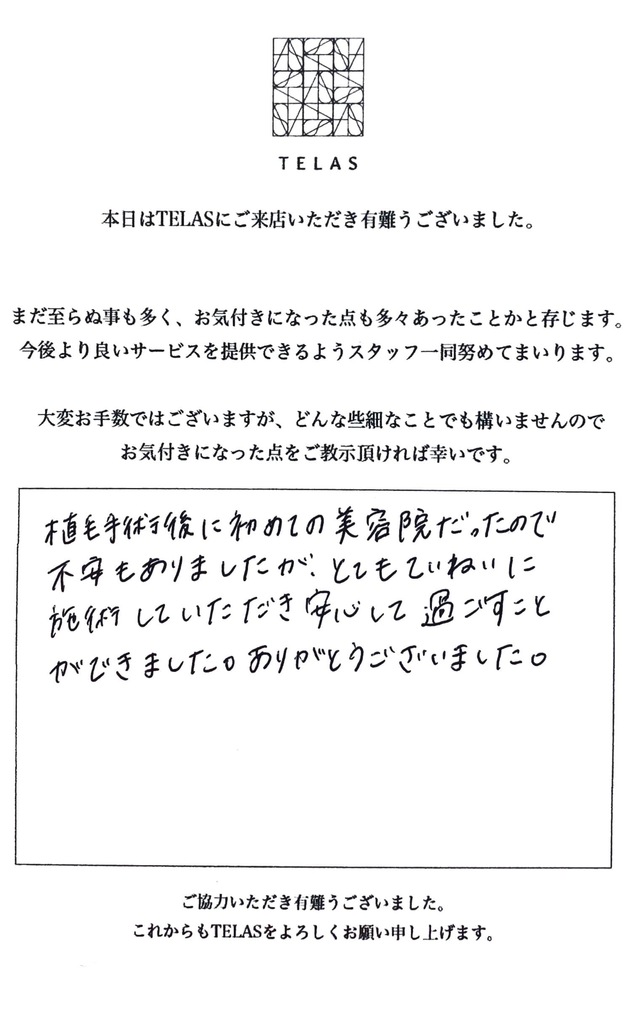 TELAS
本日はTELASにご来店いただき有難うございました。
まだ至らぬ事も多く、お気付きになった点も多々あったことかと存じます。
今後より良いサービスを提供できるようスタッフ一同努めてまいります。
大変お手数ではございますが、どんな些細なことでも構いませんので
お気付きになった点をご教示頂ければ幸いです。
植毛手術後に初めての美容院だったので
不安もありましたが、とてもていねいに
施術していただき安心して過ごすこと
ができました。ありがとうございました。
ご協力いただき有難うございました。
これからもTELASをよろしくお願い申し上げます。